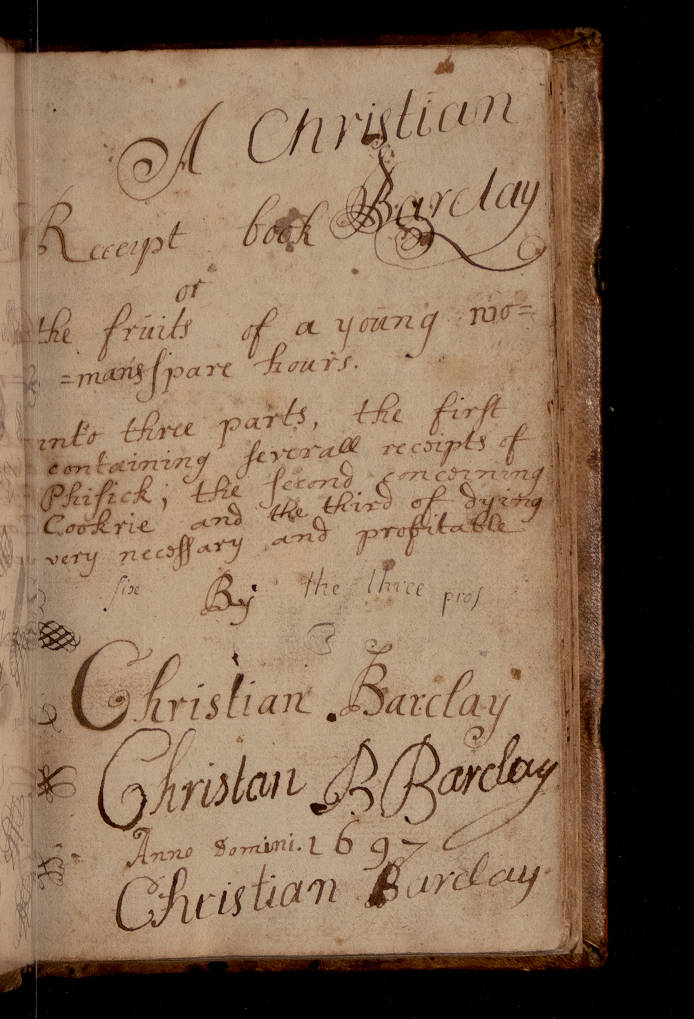 A Christian
Barclay
Receipt book
or
the fruits of a young wo=
=mans spare hours.
into three parts, the first
containing severall receipts of
Phisick; the second concerning
Cookrie and the third of dying
very necessary and profitable
six By the three pros
3
Christian Barclay
Christan B Barclay
Anno Domini. 1697
Christian Barclay